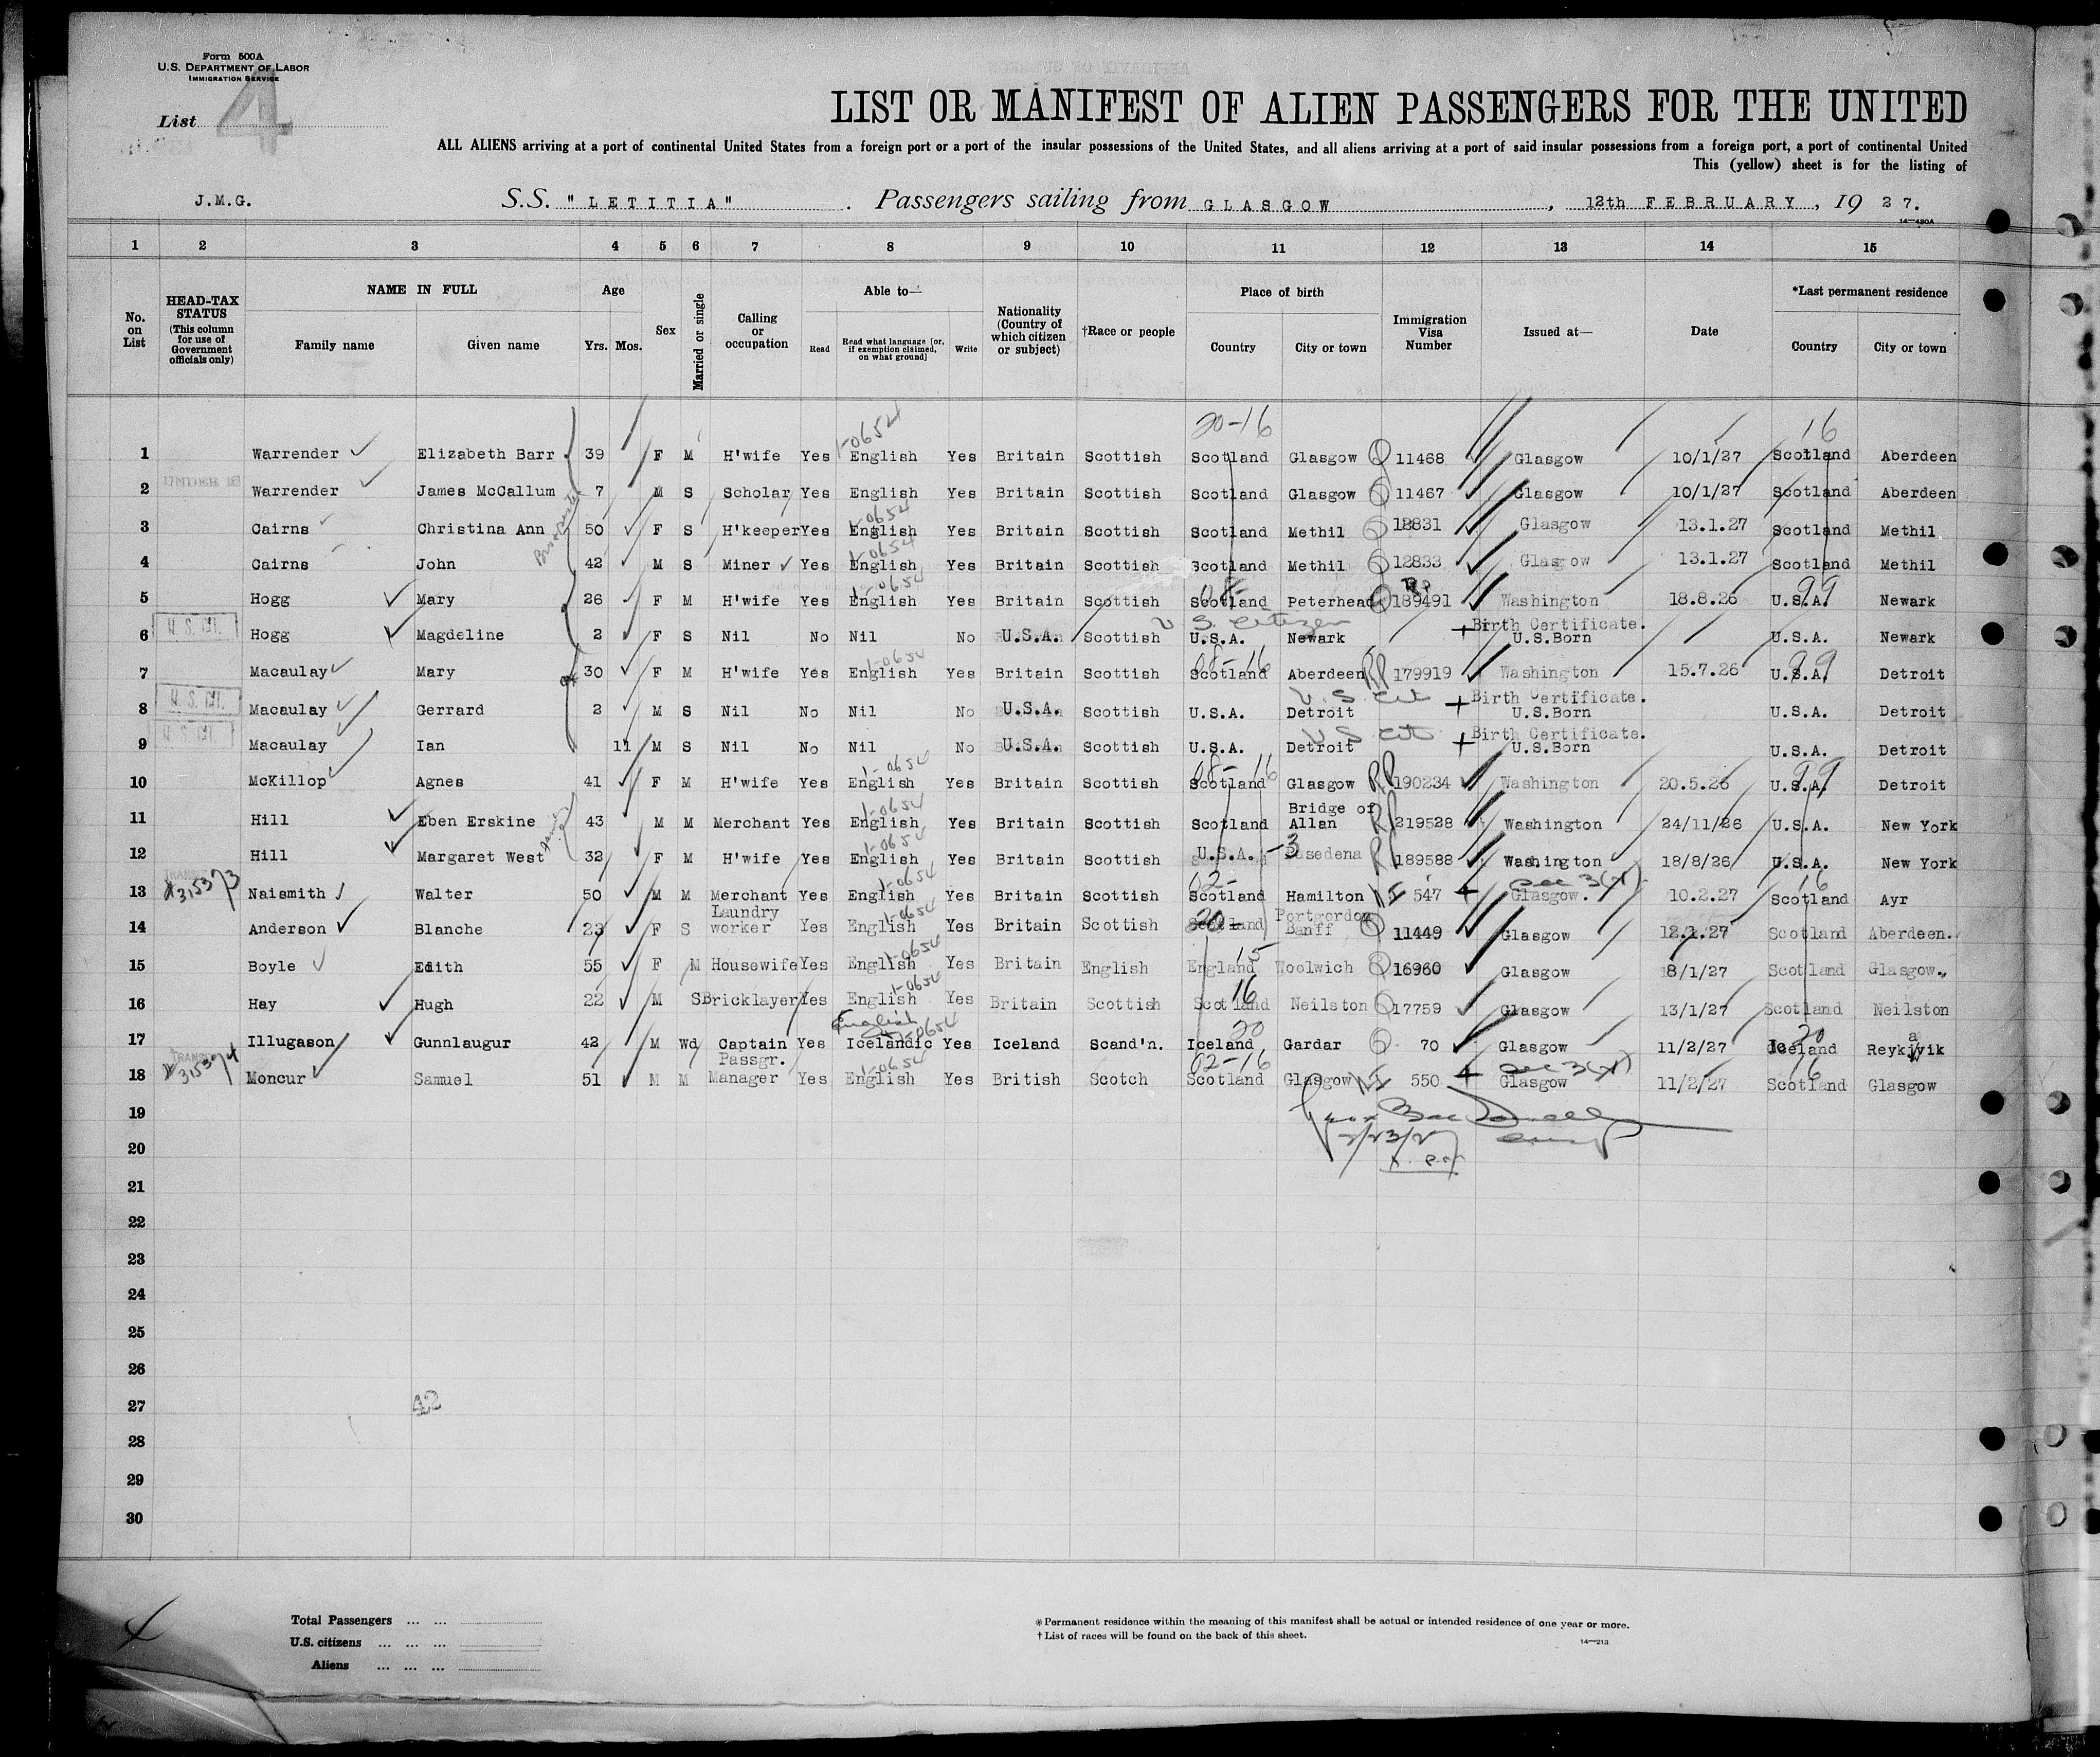 Form 500A
U.S. DEPARTMENT OF LABOR
IMMIGRATION SERVICE
List 4
LIST OR MANIFEST OF ALIEN PASSENGERS FOR THE UNITED
ALL ALIENS arriving at a port of continental United States from a foreign port or a port of the insular possessions of the United States, and all aliens arriving at a port of said insular possessions from a foreign port, a port of continental United
This (yellow) sheet is for the listing of
J.M.G. S.S. "LETITIA". Passengers sailing from GLASGOW, 12th FEBRUARY, 1927.
14—430A
1 2 3 4 5 6 7 8 9 10 11 12 13 14 15
No. on List
HEAD-TAX STATUS (This column for use of Government officials only)
NAME IN FULL
Family name Given name
Age
Yrs. Mos.
Sex
Married or single
Calling or occupation
Able to—
Read Read what language [or, if exemption claimed, on what ground] Write
Nationality (Country of which citizen or subject)
†Race or people
Place of birth
Country City or town
Immigration Visa Number
Issued at—
Date
*Last permanent residence
Country City or town
20-16 16
1 Warrender Elizabeth Barr 39 F M H'wife Yes English 1-0654 Yes Britain Scottish Scotland Glasgow 11468 Glasgow 10/1/27 Scotland Aberdeen
2 UNDER 16 Warrender James McCallum 7 M S Scholar Yes English Yes Britain Scottish Scotland Glasgow 11467 Glasgow 10/1/27 Scotland Aberdeen
3 Cairns Christina Ann 50 F S H'keeper Yes English 1-0654 Yes Britain Scottish Scotland Methil 12831 Glasgow 13.1.27 Scotland Methil
4 Cairns John 42 M S Miner Yes English 1-0654 Yes Britain Scottish Scotland Methil 12833 Glasgow 13.1.27 Scotland Methil
5 Hogg Mary 26 F M H'wife Yes English 1-0654 Yes Britain Scottish Scotland Peterhead 189491 Washington 18.8.26 U.S.A. 99 Newark
6 U.S. Cit. Hogg Magdeline 2 F S Nil No Nil No U.S.A. Scottish U.S.A. Newark U.S. Citizen + Birth Certificate. U.S.Born U.S.A. Newark
7 Macaulay Mary 30 F M H'wife Yes English 1-0654 Yes Britain Scottish Scotland Aberdeen RP 179919 Washington 15.7.26 U.S.A. 99 Detroit
8 U.S. Cit. Macaulay Gerrard 2 M S Nil No Nil No U.S.A. Scottish U.S.A. Detroit U.S. Cit + Birth Certificate. U.S.Born U.S.A. Detroit
9 U.S. Cit. Macaulay Ian 11 M S Nil No Nil No U.S.A. Scottish U.S.A. Detroit U S Cit + Birth Certificate. U.S.Born U.S.A. Detroit
10 McKillop Agnes 41 F M H'wife Yes English 1-0654 Yes Britain Scottish Scotland Glasgow RP 190234 Washington 20.5.26 U.S.A. 99 Detroit
11 Hill Eben Erskine 43 M M Merchant Yes English 1-0654 Yes Britain Scottish Scotland Bridge of Allan RP 219528 Washington 24/11/26 U.S.A. New York
12 Hill Margaret West 32 F M H'wife Yes English 1-0654 Yes Britain Scottish U.S.A. -3 Pasedena RP 189588 Washington 18/8/26 U.S.A. New York
13 TRANSIT 315373 Naismith Walter 50 M M Merchant Yes English 1-0654 Yes Britain Scottish Scotland Hamilton 547 Glasgow. Sec 3(4) 10.2.27 Scotland 16 Ayr
14 Anderson Blanche 23 F S Laundry worker Yes English 1-0654 Yes Britain Scottish Scotland Portgordon Banff 11449 Glasgow 12.1.27 Scotland Aberdeen.
15 Boyle Edith 55 F M Housewife Yes English 1-0654 Yes Britain English England 15 Woolwich 16960 Glasgow 8/1/27 Scotland Glasgow.
16 Hay Hugh 22 M S Bricklayer Yes English 1-0654 Yes Britain Scottish Scotland 16 Neilston 17759 Glasgow 13/1/27 Scotland Neilston
17 Illugason Gunnlaugur 42 M Wd Captain Yes English Icelandic 1-0654 Yes Iceland Scand'n. Iceland 20 Gardar 70 Glasgow 11/2/27 Iceland 20 Reykjavik
18 TRANSIT 315374 Moncur Samuel 51 M M Passgr. Manager Yes English 1-0654 Yes British Scotch Scotland 02-16 Glasgow 550 Glasgow Sec 3(4) 11/2/27 Scotland 16 Glasgow
19
20
21
22
23
24
25
26
27 42
28
29
30
4
Total Passengers ... ...
U.S. citizens ... ... ...
Aliens ... ... ...
*Permanent residence within the meaning of this manifest shall be actual or intended residence of one year or more.
†List of races will be found on the back of this sheet.
14—213